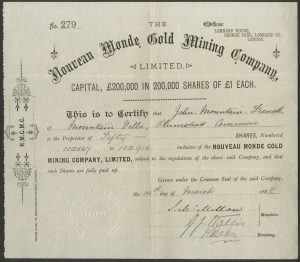 No. 279
THE
Offices:
LOMBARD HOUSE,
GEORGE YARD, LOMBARD ST.,
LONDON.
Nouveau Monde Gold Mining Company,
LIMITED.
CAPITAL, £200,000 IN 200,000 SHARES OF £1 EACH.
This is to Certify that John Mountain
of Mountain Villa, Plumstead Common
is the Proprietor of Fifty SHARES, Numbered
102867 to 102916 inclusive of the NOUVEAU MONDE GOLD
MINING COMPANY, LIMITED, subject to the regulations of the said Company, and that
such Shares are fully paid up.
Given under the Common Seal of the said Company,
the 14th day of March 1888
Directors.
Secretary.
N.M.G.M.C.